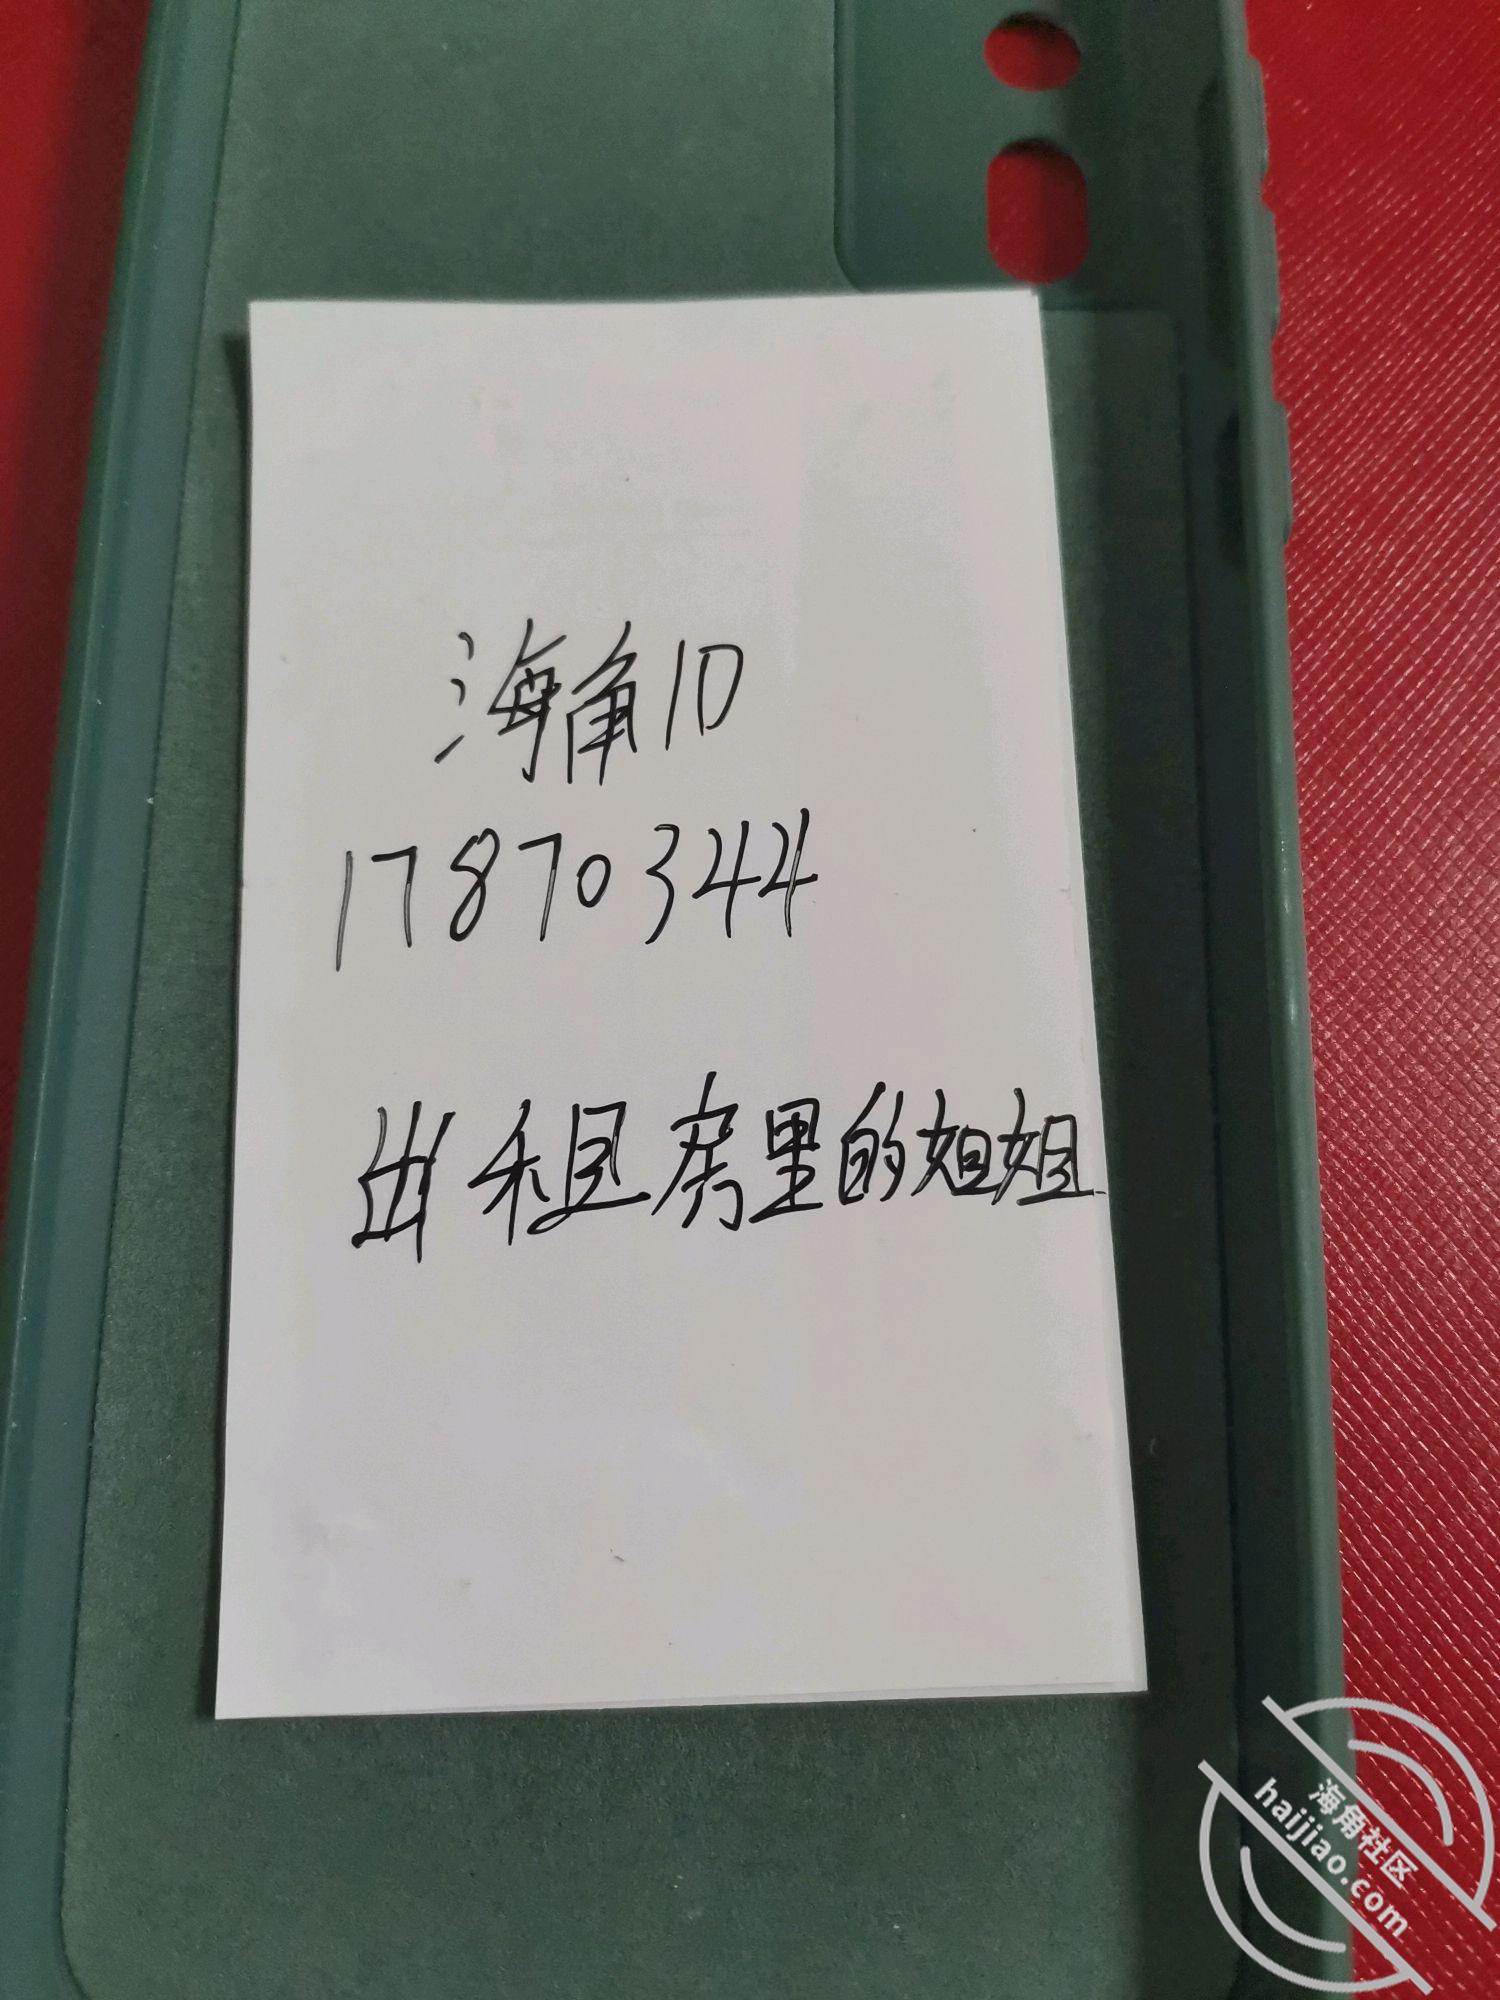 海角ID
17870344
出租房里的姐姐
海角社区
haijiao.com